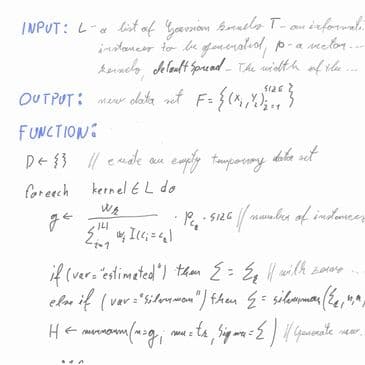 INPUT: L - a list of Gaussian kernels T - an informati
instances to be generated, p - a vector...
kernels, defaultSpread - The width of the ...
OUTPUT: new data set F = {(x_i, y_i)_{i=1}^{size}}
FUNCTION:
D ← {} // create an empty temporary data set
foreach kernel ∈ L do
g ← w_k / ∑_{i=1}^{|L|} w_i I(c_i = c_k) · p_{c_k} · size // number of instances
if (var = "estimated") then Σ = Σ_k // with zeros ...
else if (var = "silverman") then Σ = silverman(Σ_k, n, n
H ← mvrnorm(n=g, mu=t_k, Sigma=Σ) // Generate new...